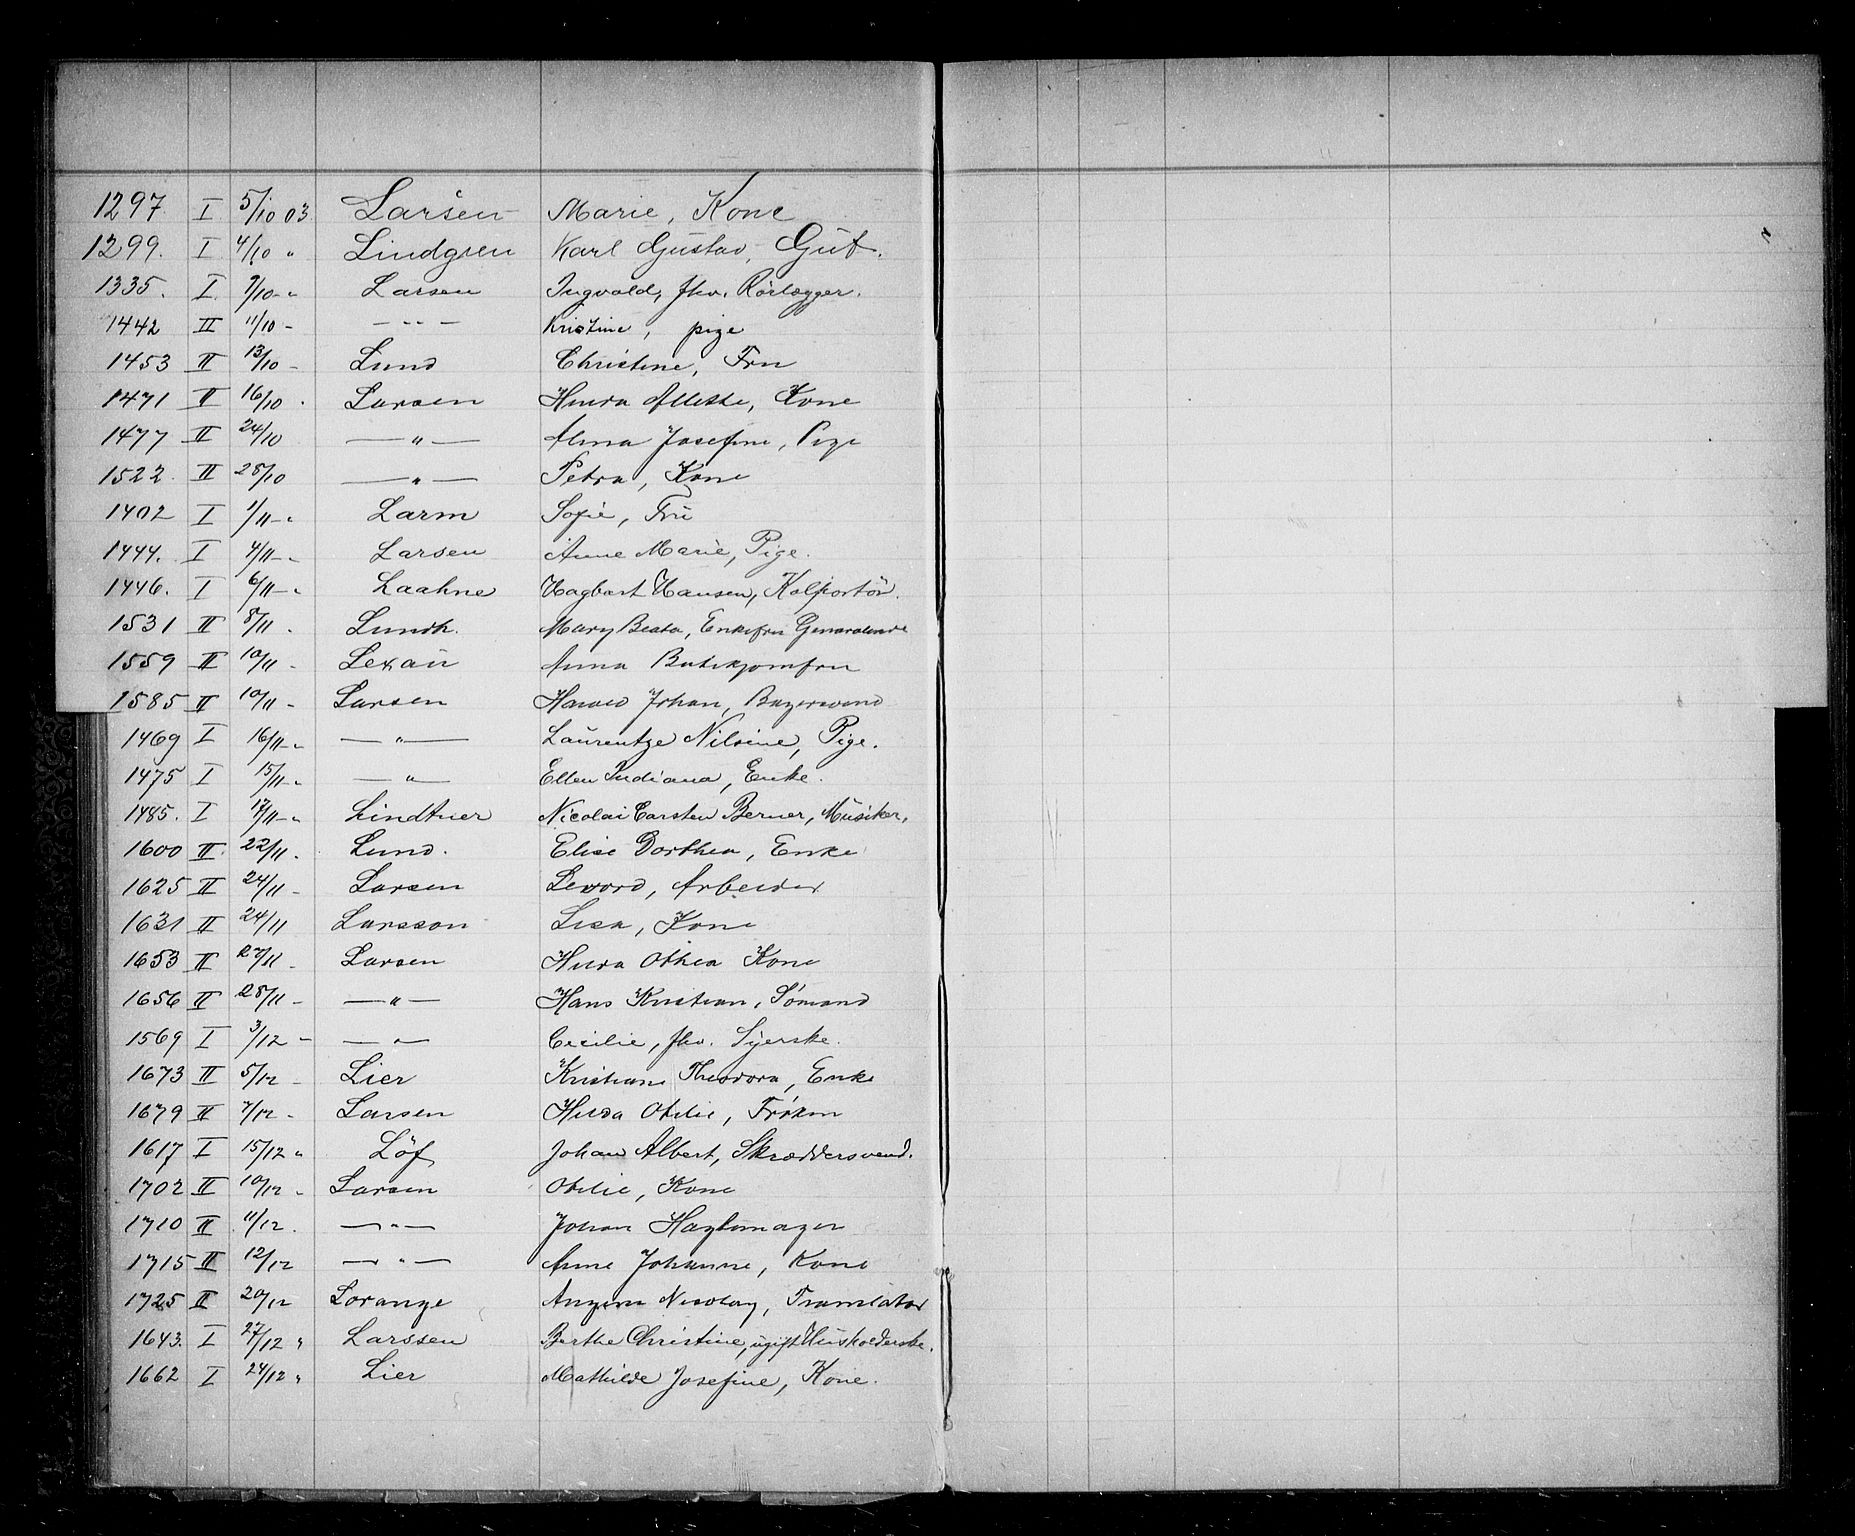 1297. I 5/10 03. Larsen Marie, Kone
1299. I 4/10 " Lindgren Karl Gustav, Gut.
1335. I 7/10 - " Larsen Ingvald, fhv. Rörlægger.
1442 II 11/10 - — " — Kristine, pige
1453 II 13/10 - Lund Christine, Fru
1471 II 16/10 . Larsen Hulda Alette, Kone
1477 II 24/10 — " — Alma Josefine, Pige
1522. II 28/10 — " — Petra, Kone
1402 I 1/11 - " Larm Sofie, Frü
1444. I 4/11 - " Larsen Anne Marie, Pige.
1446. I 6/11 - " Laahne Hagbart Hansen, Kolportör.
1531 II 8/11 . Lundh. Mary Beata, Enkefru
1559 II 10/11 - Lexau Anna Butikjomfru
1585 II 10/11 - Larsen Harald Johan, Bagersvend
1469 I 16/11 - " — " — Laurentze Nilsine, Pige.
1475 I 15/11 - " — " — Ellen Indiana, Enke.
1485. I 17/11 - " Lindtner Nicolai Carsten Berner, Müsiker.
1600 II 22/11 . Lund. Elise Dorthea, Enke
1625 II 24/11 - Larsen Arbeider
1631 II 24/11 Larsson Lisa, Kone
1653 II 27/11 - Larsen Hulda Othea Kone
1656 II 28/11 - — " — Hans Kristian, Sømand
1569 I 3/12 - — " — Cecilie, fhv. Syerske.
1673 II 5/12 - Lier Kristiane Theodora, Enke
1679 II 7/12 - Larsen Hulda Otilie, Frøken
1617 I 15/12 " Löf Johan Albert, Skræddersvend.
1702 II 10/12 - Larsen Otilie, Kone
1710 II 11/12. — " — Johan
1715 II 12/12 — " — Anne Johanne, Kone
1725 II 20/12 Lorange Nicolay, Translatør
1643. I 27/12 " Larssen Berthe Christine, ugift Husholderske.
1662 I 24/12 " Lier Mathilde Josefine, Kone.